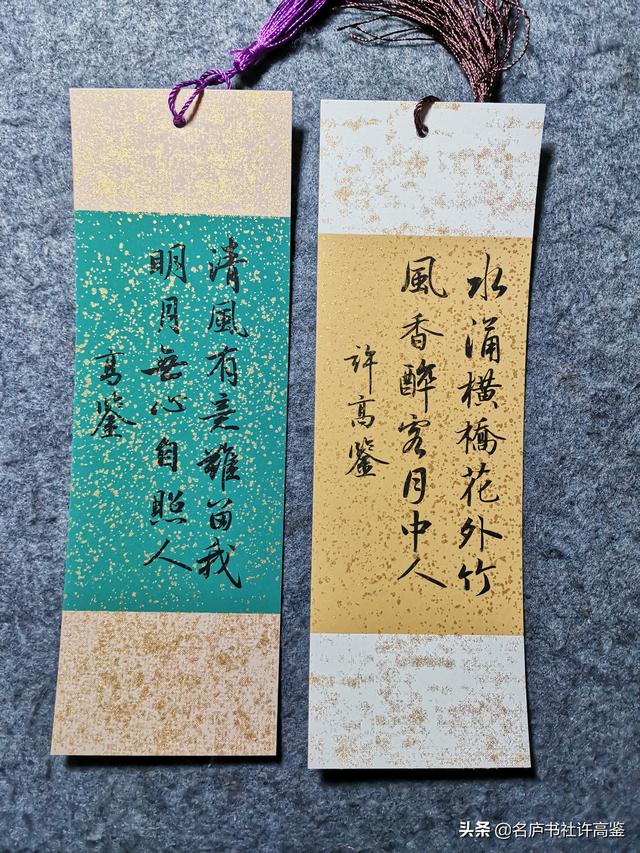 清風有意難留我
明月無心自照人
高鉴
水涌橫橋花外竹
風香醉客月中人
許高鉴
头条 @名庐书社许高鉴